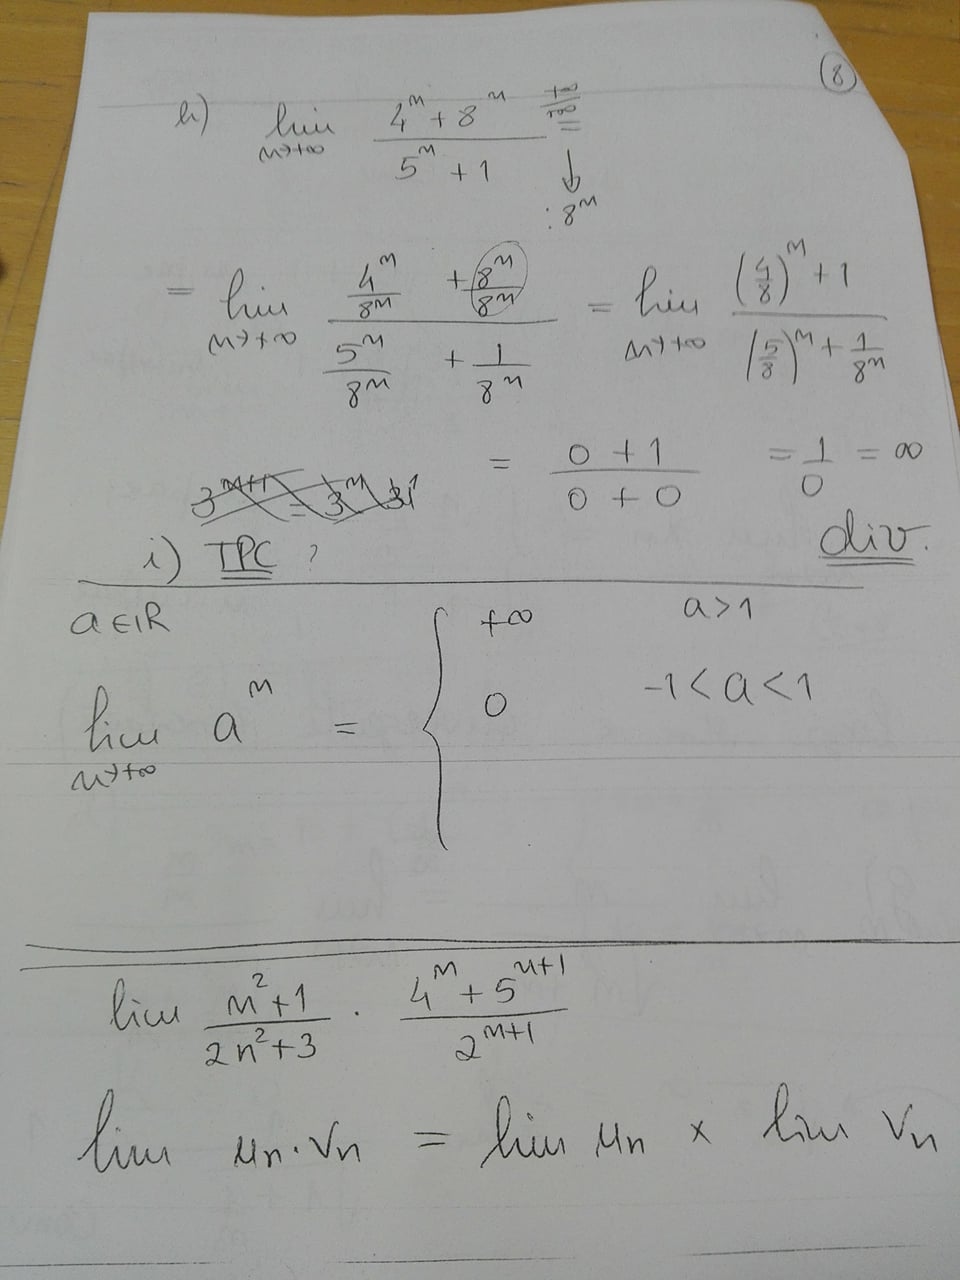 8
h) lim n→+∞ (4^n + 8^n)/(5^n + 1) +∞/+∞ =
↓
: 8^n
= lim n→+∞ (4^n/8^n + 8^n/8^n)/(5^n/8^n + 1/8^n) = lim n→+∞ ((4/8)^n + 1)/((5/8)^n + 1/8^n)
= (0 + 1)/(0 + 0) = 1/0 = ∞
3^(n+1) = 3^n 3^1
div.
i) TPC ?
a ∈ IR
lim n→+∞ a^n = { +∞ a > 1
0 -1 < a < 1
lim (n^2 + 1)/(2n^2 + 3) · (4^n + 5^(n+1))/(2^(n+1))
lim un · vn = lim un × lim vn